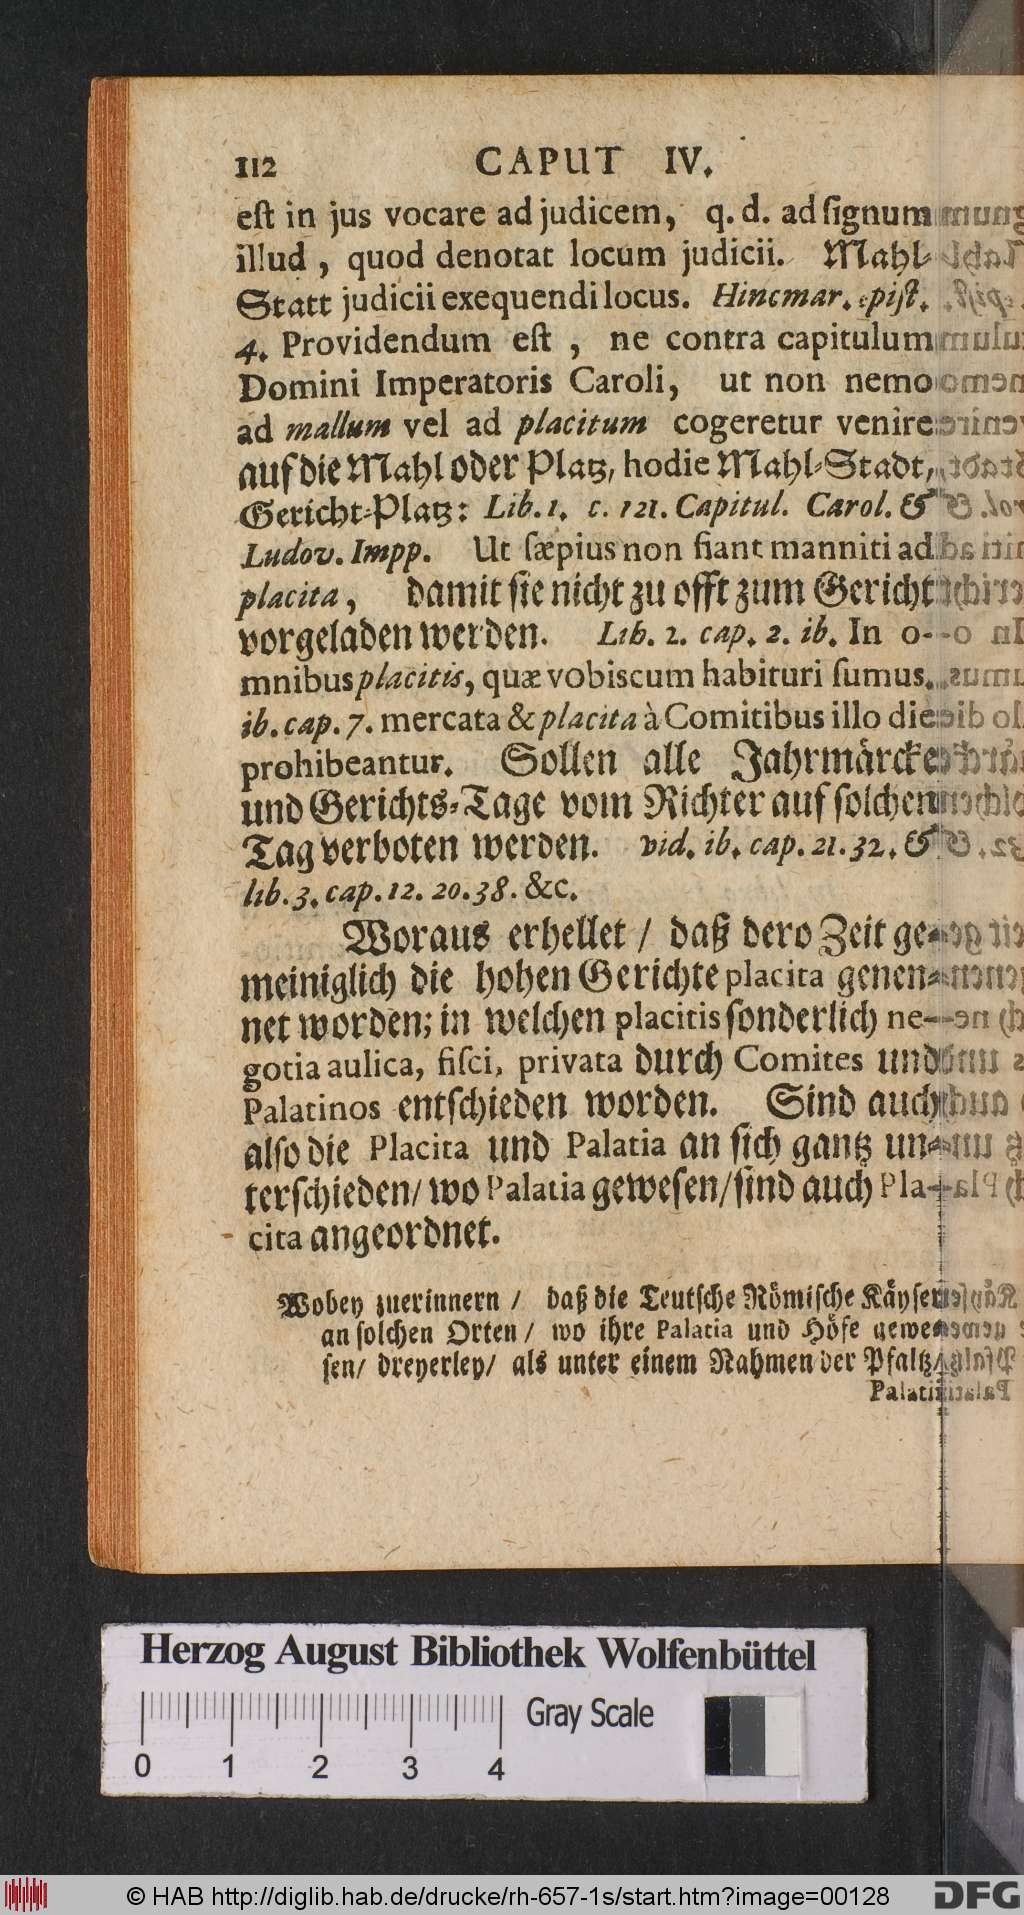 112 CAPUT IV.
est in jus vocare ad judicem, q. d. ad signum
illud, quod denotat locum judicii. Mahl-
Statt judicii exequendi locus. Hincmar. epist.
4. Providendum est, ne contra capitulum
Domini Imperatoris Caroli, ut non nemo
ad mallum vel ad placitum cogeretur venire
auf die Mahl oder Platz, hodie Mahl-Stadt,
Gericht-Platz: Lib. 1. c. 121. Capitul. Carol. &
Ludov. Impp. Ut sæpius non fiant manniti ad
placita, damit sie nicht zu offt zum Gericht
vorgeladen werden. Lib. 2. cap. 2. ib. In o-
mnibus placitis, quæ vobiscum habituri sumus.
ib. cap. 7. mercata & placita à Comitibus illo die
prohibeantur. Sollen alle Jahrmärcke
und Gerichts-Tage vom Richter auf solchen
Tag verboten werden. vid. ib. cap. 21. 32. &
lib. 3. cap. 12. 20. 38. &c.
Woraus erhellet / daß dero Zeit ge-
meiniglich die hohen Gerichte placita genen-
net worden; in welchen placitis sonderlich ne-
gotia aulica, fisci, privata durch Comites und
Palatinos entschieden worden. Sind auch
also die Placita und Palatia an sich gantz un-
terschieden/ wo Palatia gewesen/ sind auch Pla-
cita angeordnet.
Wobey zuerinnern / daß die Teutsche Römische Käyser
an solchen Orten / wo ihre Palatia und Höfe gewe-
sen/ dreyerley/ als unter einem Nahmen der Pfaltz/
Palatii
Herzog August Bibliothek Wolfenbüttel
Gray Scale
0 1 2 3 4
© HAB http://diglib.hab.de/drucke/rh-657-1s/start.htm?image=00128
DFG